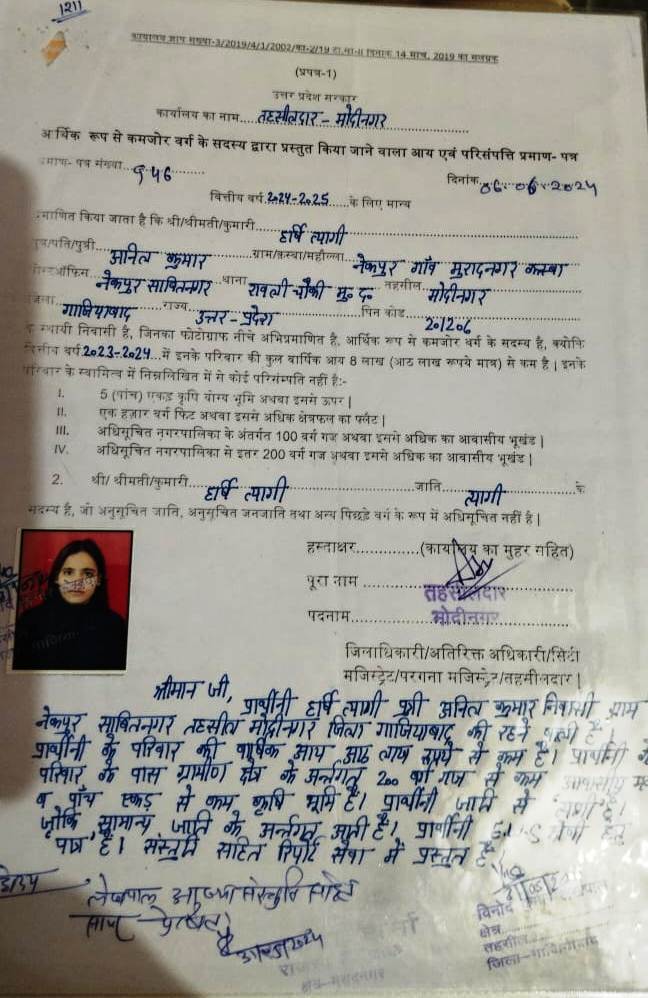 1211
कार्यालय ज्ञाप संख्या-3/2019/4/1/2002/का-2/19 टी.सी.-II दिनांक 14 मार्च, 2019 का संलग्नक
(प्रपत्र-1)
उत्तर प्रदेश सरकार
कार्यालय का नाम....तहसीलदार - मोदीनगर
आर्थिक रूप से कमजोर वर्ग के सदस्य द्वारा प्रस्तुत किया जाने वाला आय एवं परिसंपत्ति प्रमाण- पत्र
प्रमाण- पत्र संख्या...946 दिनांक 06.06.2024
वित्तीय वर्ष 2024-2025......के लिए मान्य
प्रमाणित किया जाता है कि श्री/श्रीमती/कुमारी....हर्षि त्यागी
पुत्र/पति/पुत्री...अनिल कुमार...ग्राम/कस्बा/मोहल्ला...नेकपुर गाँव मुरादनगर कस्बा
पोस्टऑफिस...नेकपुर साबितनगर..थाना रावली चौकी मु० द० तहसील...मोदीनगर
जिला...गाजियाबाद...राज्य...उत्तर-प्रदेश...पिन कोड...201206
के स्थायी निवासी है, जिनका फोटोग्राफ नीचे अभिप्रमाणित है, आर्थिक रूप से कमजोर वर्ग के सदस्य है, क्योंकि
वित्तीय वर्ष 2023-2024...में इनके परिवार की कुल वार्षिक आय 8 लाख (आठ लाख रूपये मात्र) से कम है | इनके
परिवार के स्वामित्व में निम्नलिखित में से कोई परिसंम्पति नहीं है:-
I. 5 (पांच) एकड़ कृषि योग्य भूमि अथवा इससे ऊपर |
II. एक हज़ार वर्ग फिट अथवा इससे अधिक क्षेत्रफल का फ्लैट |
III. अधिसूचित नगरपालिका के अंतर्गत 100 वर्ग गज अथवा इससे अधिक का आवासीय भूखंड |
IV. अधिसूचित नगरपालिका से इतर 200 वर्ग गज अथवा इससे अधिक का आवासीय भूखंड |
2. श्री/ श्रीमती/कुमारी...हर्षि त्यागी...जाति...त्यागी...के
सदस्य है, जो अनुसूचित जाति, अनुसूचित जनजाति तथा अन्य पिछड़े वर्ग के रूप में अधिसूचित नहीं है |
हस्ताक्षर..............(कार्यालय का मुहर सहित)
पूरा नाम
तहसीलदार
पदनाम
मोदीनगर
जिलाधिकारी/अतिरिक्त अधिकारी/सिटी
मजिस्ट्रेट/परगना मजिस्ट्रेट/तहसीलदार |
श्रीमान जी, प्रार्थीनी हर्षि त्यागी पुत्री अनिल कुमार निवासी ग्राम
नेकपुर साबितनगर तहसील मोदीनगर जिला गाजियाबाद की रहने वाली है।
प्रार्थीनी के परिवार की वार्षिक आय आठ लाख रूपये से कम है। प्रार्थीनी के
परिवार के पास ग्रामीण क्षेत्र के अन्तर्गत 200 वर्ग गज से कम आवासीय
व पाँच एकड़ से कम कृषि भूमि है। प्रार्थीनी जाति से त्यागी है।
जोकि सामान्य जाति के अन्तर्गत आती है। प्रार्थीनी श्रेणी हेतु
पात्र है। संस्तुति सहित रिपोर्ट सेवा में प्रस्तुत है
लेखपाल आख्या
विनोद
क्षेत्र
तहसील
जिला-गाजियाबाद
क्षेत्र-मुरादनगर